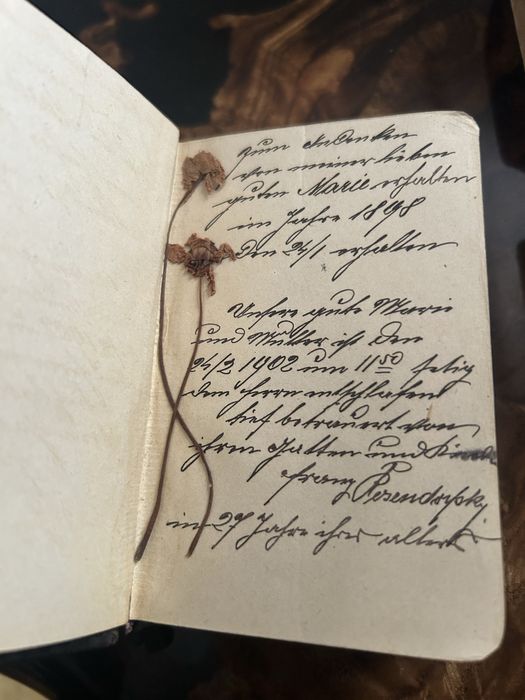 Zum Andenken
von meiner lieben
guten Marie erhalten
im Jahre 1898
Den 24/1 erhalten
Unsere gute Marie
und Mutter ist den
24/2 1902 um 11 50 selig
dem Herrn entschlafen
tief betrauert von
ihrem Gatten und
Franz
im 27 Jahre ihres alters